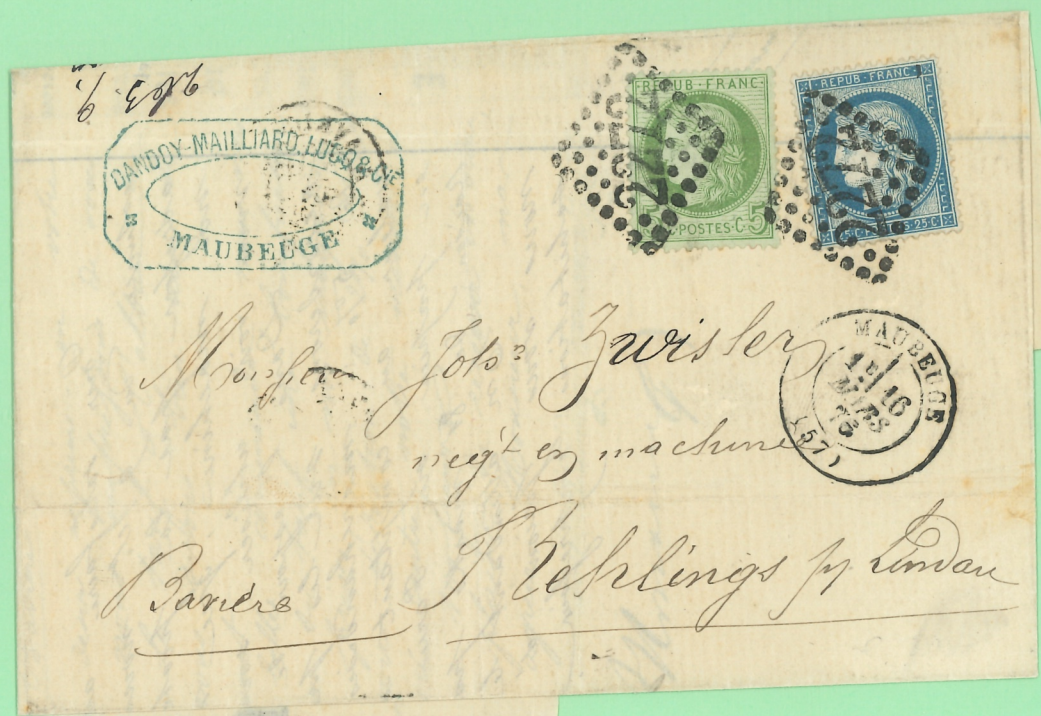 DANDOY-MAILLIARD, LUCQ & Cie
MAUBEUGE
REPUB·FRANC·
5·C·POSTES·C·5
REPUB·FRANC·
25·C·POSTES·25·C
MAUBEUGE
16
MARS
76
(57)
Monsieur Johs Zwisler
négt en machines
Rehlings p/ Lindau
Bavière